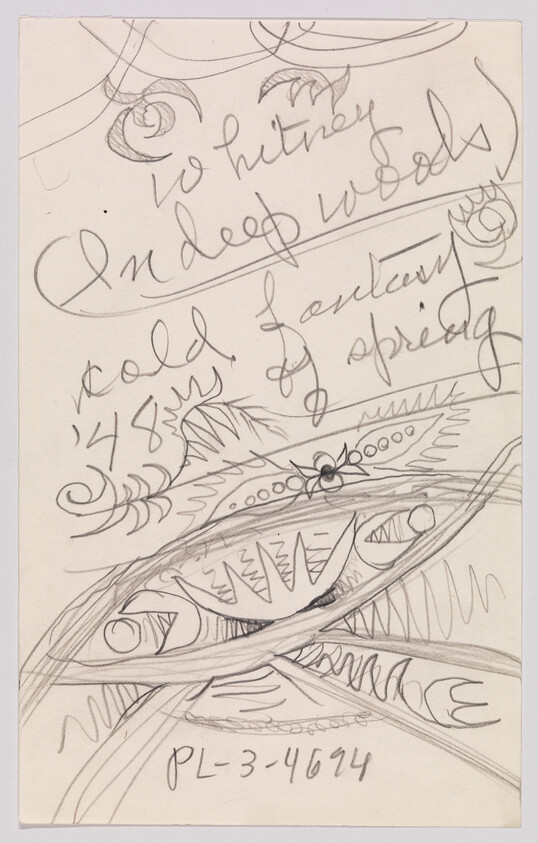 Whitney
(In deep woods)
cold fantasy
of spring
'48
PL-3-4694